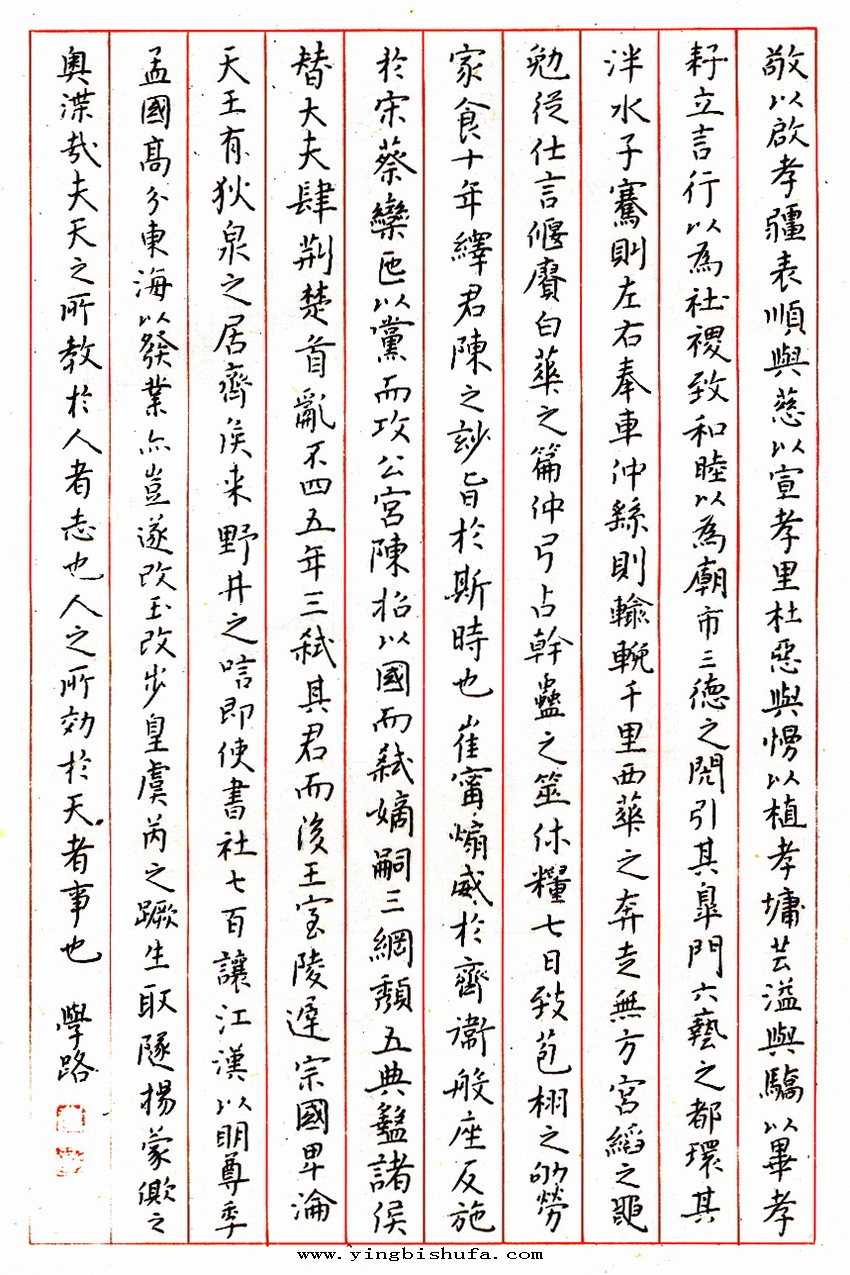 敬以啟孝疆表順與慈以宣孝里杜惡與慢以植孝墉芸溢與驕以畢孝
耔立言行以為社禝致和睦以為廟市三德之閌引其皐門六藝之都環其
泮水子騫則左右奉車仲繇則輸輓千里西華之奔走無方宮縚之黽
勉從仕言偃賡白華之篇仲弓占幹蠱之筮休糧七日致苞栩之劬勞
家食十年繹君陳之玅旨於斯時也崔甯煽威於齊衞般座反施
於宋蔡欒迆以黨而攻公宮陳招以國而弒嫡嗣三綱頽五典盭諸侯
替大夫肆荆楚首亂不四五年三弒其君而後王室陵遲宗國卑淪
天王有狄泉之居齊侯来野井之唁即使書社七百讓江漢以明尊季
孟國高分東海以發業亦豈遂改玉改步皇虞芮之蹶生耴隧揚蒙僛之
奥渫哉夫天之所教於人者志也人之所効於天者事也 學路
www.yingbishufa.com